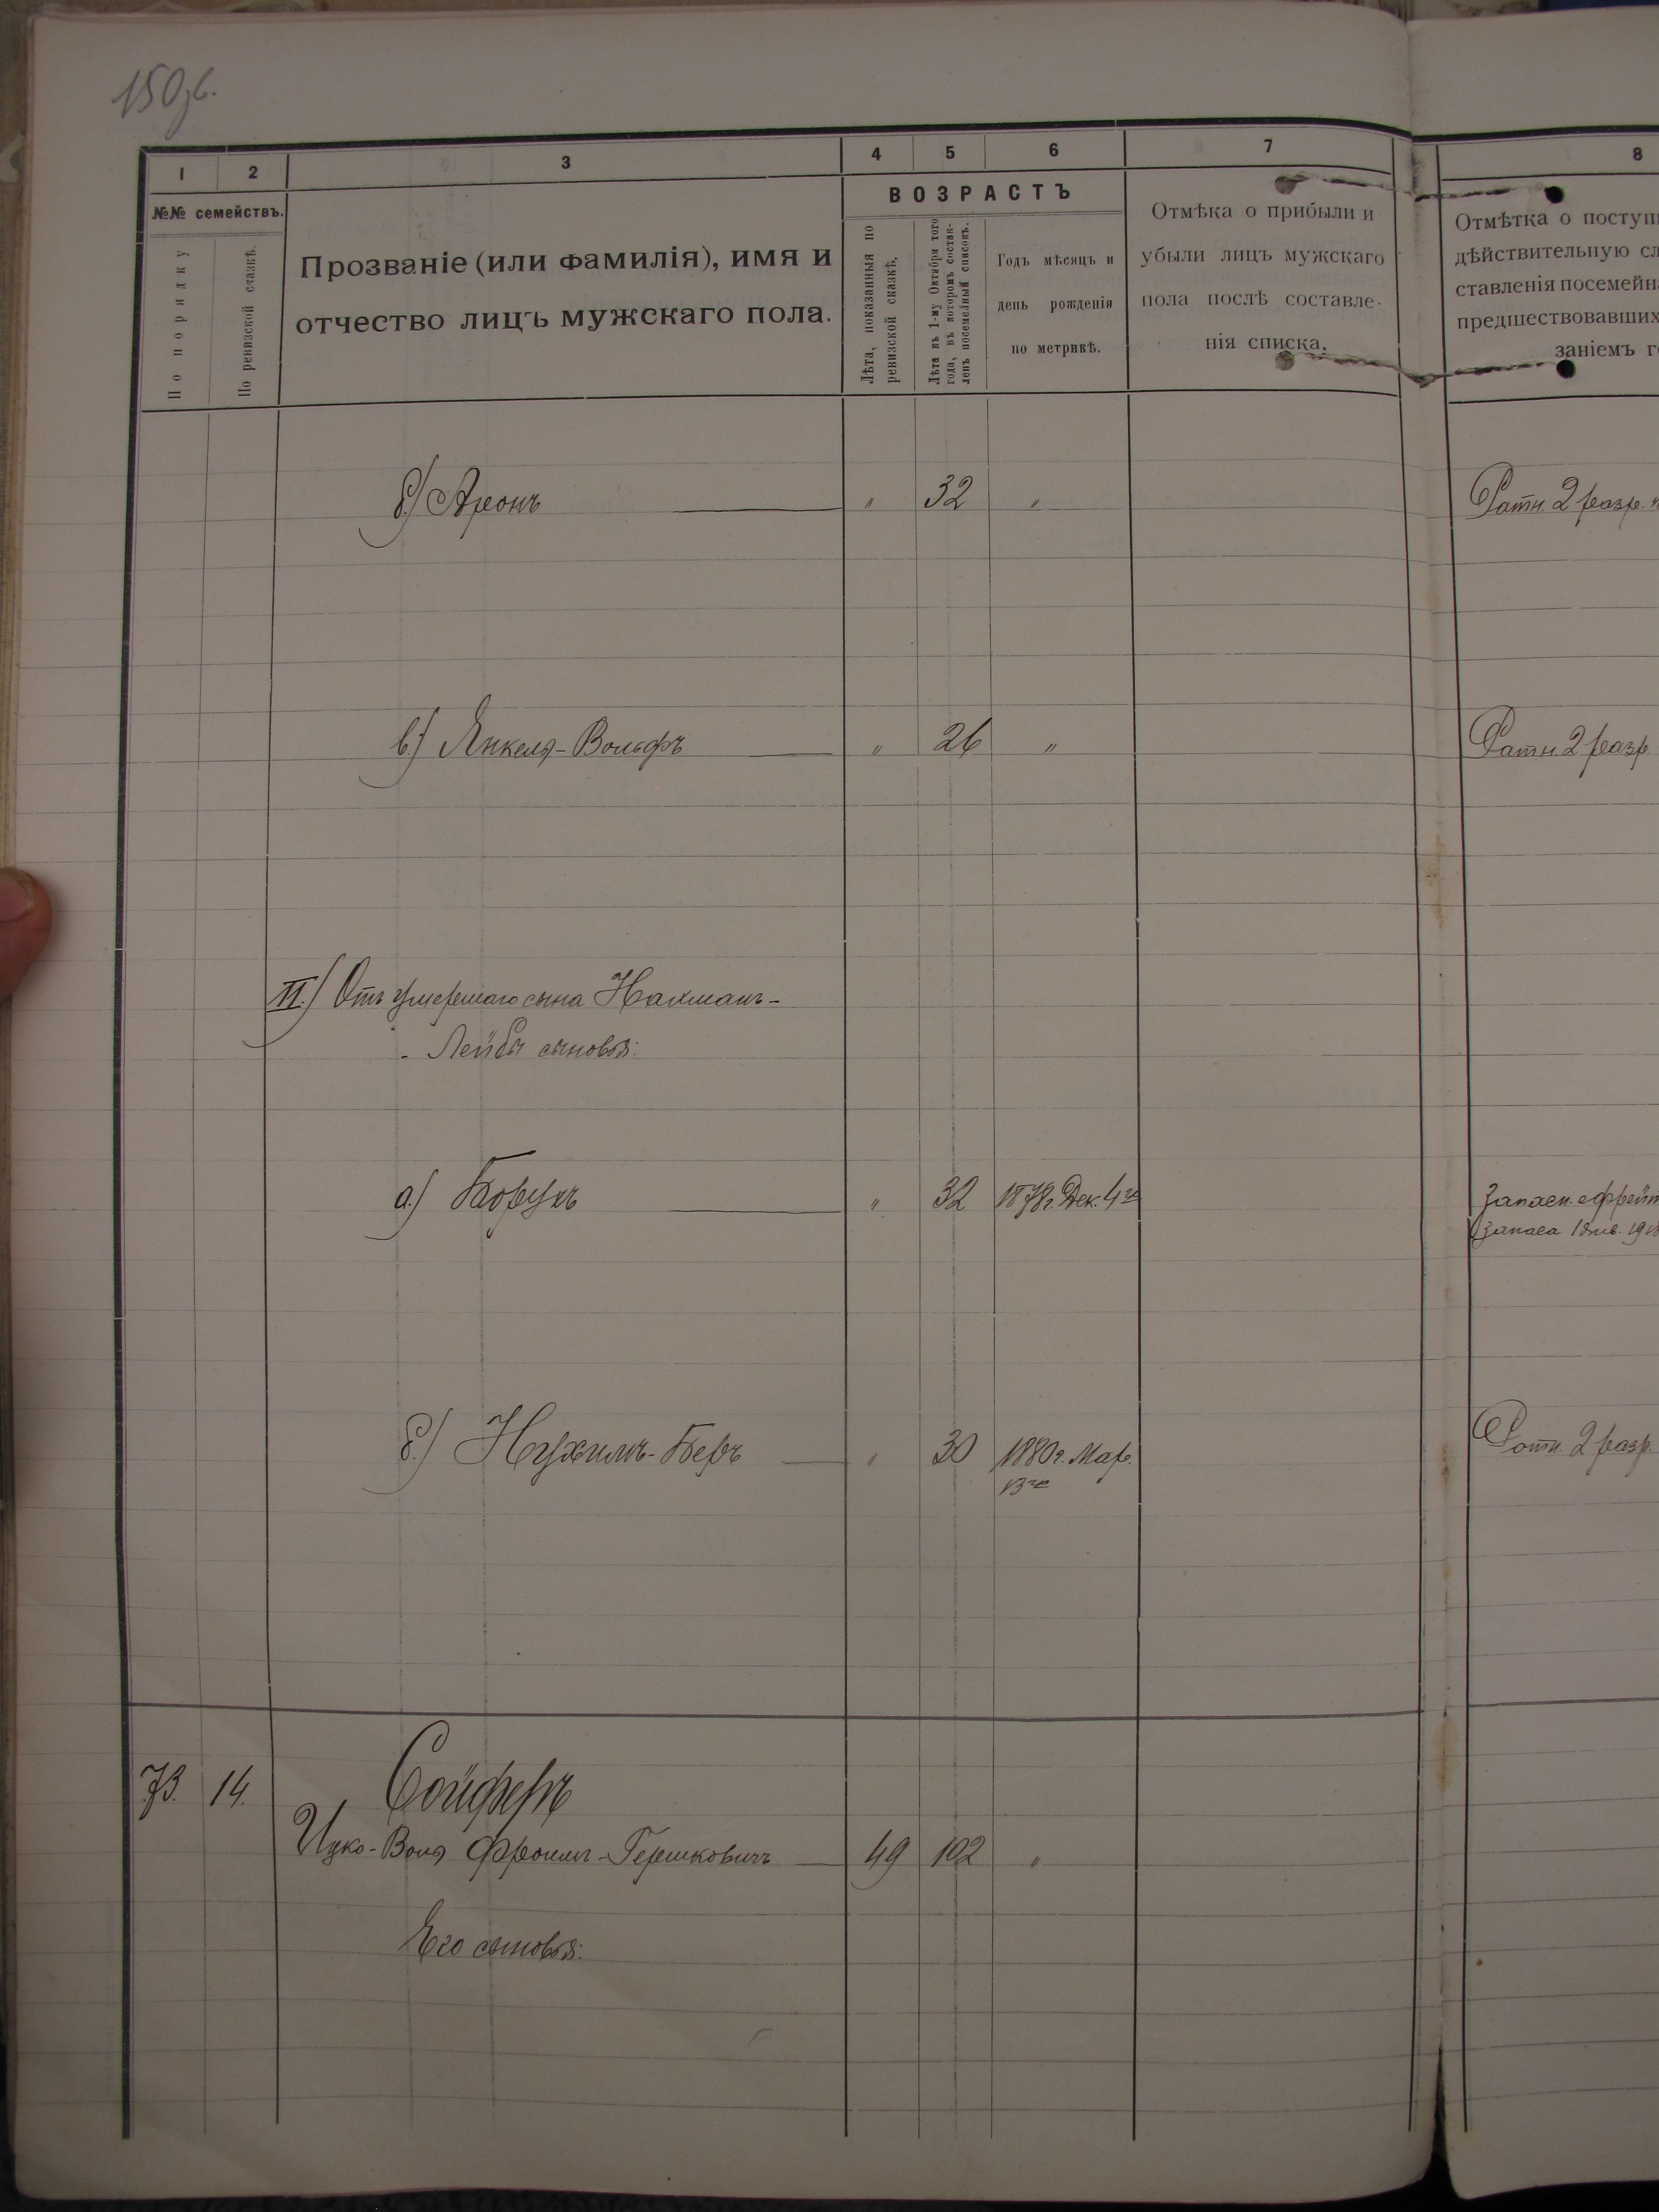 150 об.
1 2 3 4 5 6 7 8
№№ семействъ.
По порядку
По ревизской сказкѣ.
Прозваніе (или фамилія), имя и
отчество лицъ мужскаго пола.
ВОЗРАСТЪ
Лѣта, показанныя по
ревизской сказкѣ.
Лѣта къ 1-му Октября того
года, въ которомъ состав-
ленъ посемейный списокъ.
Годъ мѣсяцъ и
день рожденія
по метрикѣ.
Отмѣка о прибыли и
убыли лицъ мужскаго
пола послѣ составле-
нія списка.
Отмѣтка о поступ
дѣйствительную сл
ставленія посемейн
предшествовавших
заніемъ г
б.) Аронъ " 32 " Ратн. 2 разр.
в.) Янкель-Вольфъ " 26 " Ратн. 2 разр.
II.) Отъ умершаго сына Нахманъ-
- Лейбы сыновья:
а.) Борухъ " 32 1878 г. Дек. 4го Запасн. ефрейт
запаса 1 янв. 191
б.) Нухимъ-Беръ " 30 1880 г. Мар. Ратн. 2 разр.
13го
73. 14. Сойферъ
Ицко-Воля Фроимъ-Гершковичъ 49 102 "
Его сыновья: